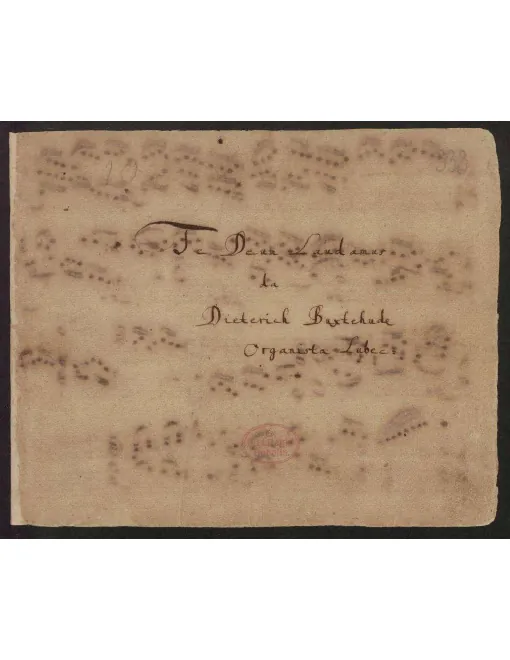 10
338
Te Deum Laudamus
da
Dieterich Buxtehude
Organista Lubec: